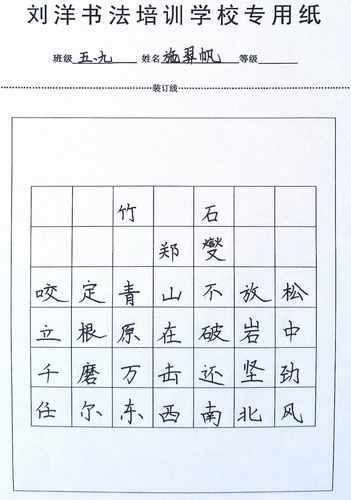 刘洋书法培训学校专用纸
班级 五.九 姓名 施羿帆 等级
装订线
竹 石
郑 燮
咬 定 青 山 不 放 松
立 根 原 在 破 岩 中
千 磨 万 击 还 坚 劲
任 尔 东 西 南 北 风